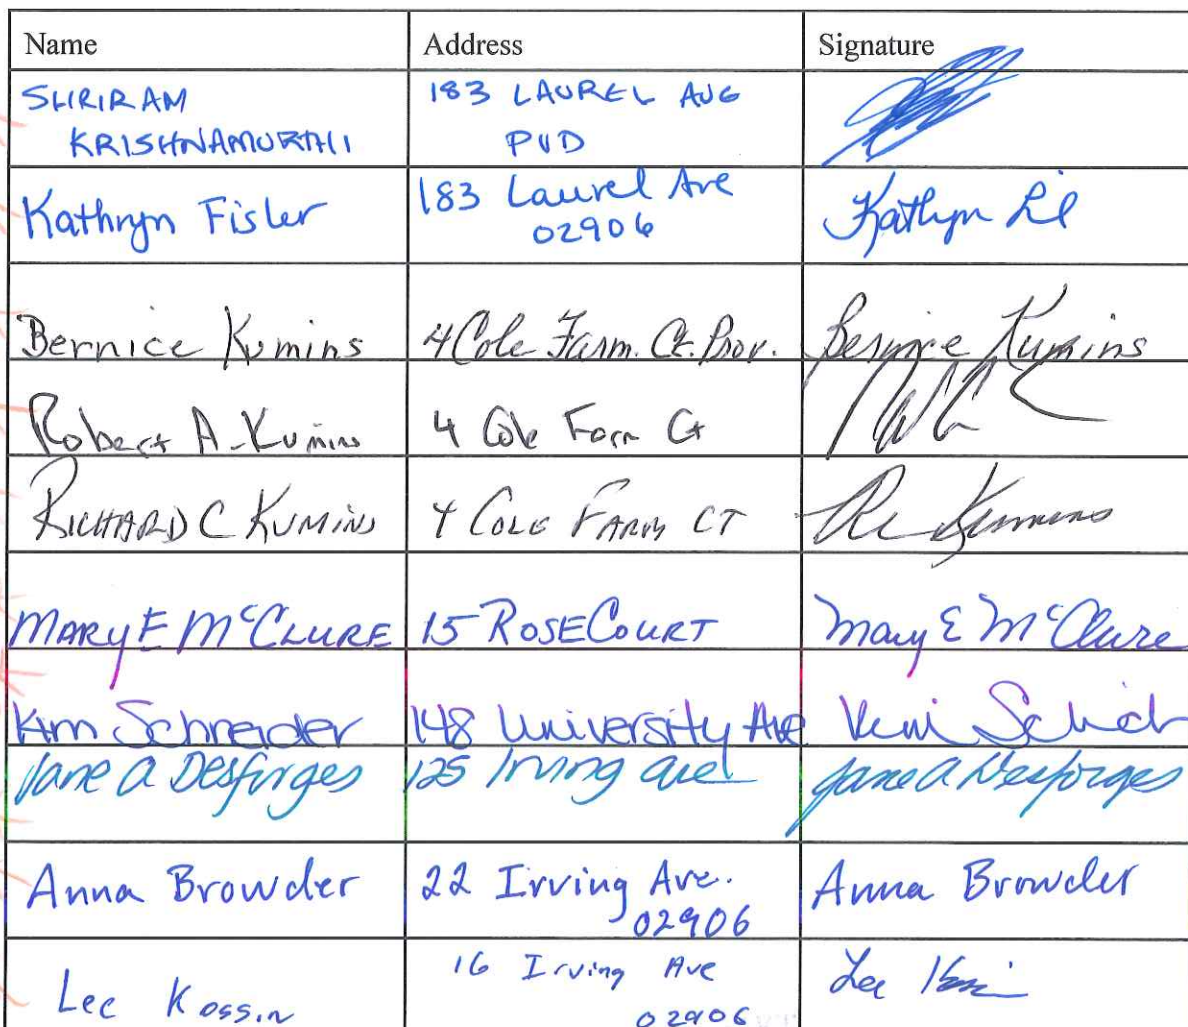 Name Address Signature
SHRIRAM 183 LAUREL AVE
KRISHNAMURTHI PVD
Kathryn Fisler 183 Laurel Ave Kathryn
02906
Bernice Kumins 4 Cole Farm. Ct. Prov. Bernice Kumins
Robert A. Kumins 4 Cole Farm Ct
RICHARD C KUMINS 4 COLE FARM CT Kumins
MARY E McCLURE 15 ROSE COURT Mary E McClure
Kim Schneider 148 University Ave
Jane A Desforges 125 Irving ave Jane A Desforges
Anna Browder 22 Irving Ave. Anna Browder
02906
Lee Kossin 16 Irving Ave Lee
02906